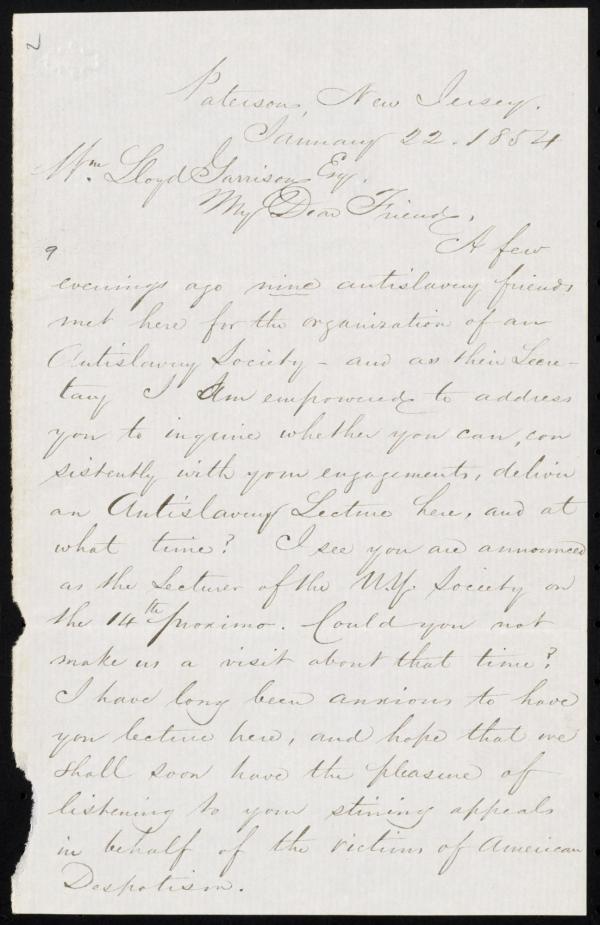 2
Paterson, New Jersey.
January 22. 1854
Wm. Lloyd Garrison Esq.
My Dear Friend,
A few
9
evenings ago nine antislavery friends
met here for the organization of an
Antislavery Society – and as their Secre-
tary I am empowered to address
you to inquire whether you can, con
sistently with your engagements, deliver
an Antislavery Lecture here, and at
what time? I see you are announced
as the Lecturer of the N.Y. Society on
the 14th proximo. Could you not
make us a visit about that time?
I have long been anxious to have
you lecture here, and hope that we
shall soon have the pleasure of
listening to your stirring appeals
in behalf of the victims of American
Despotism.